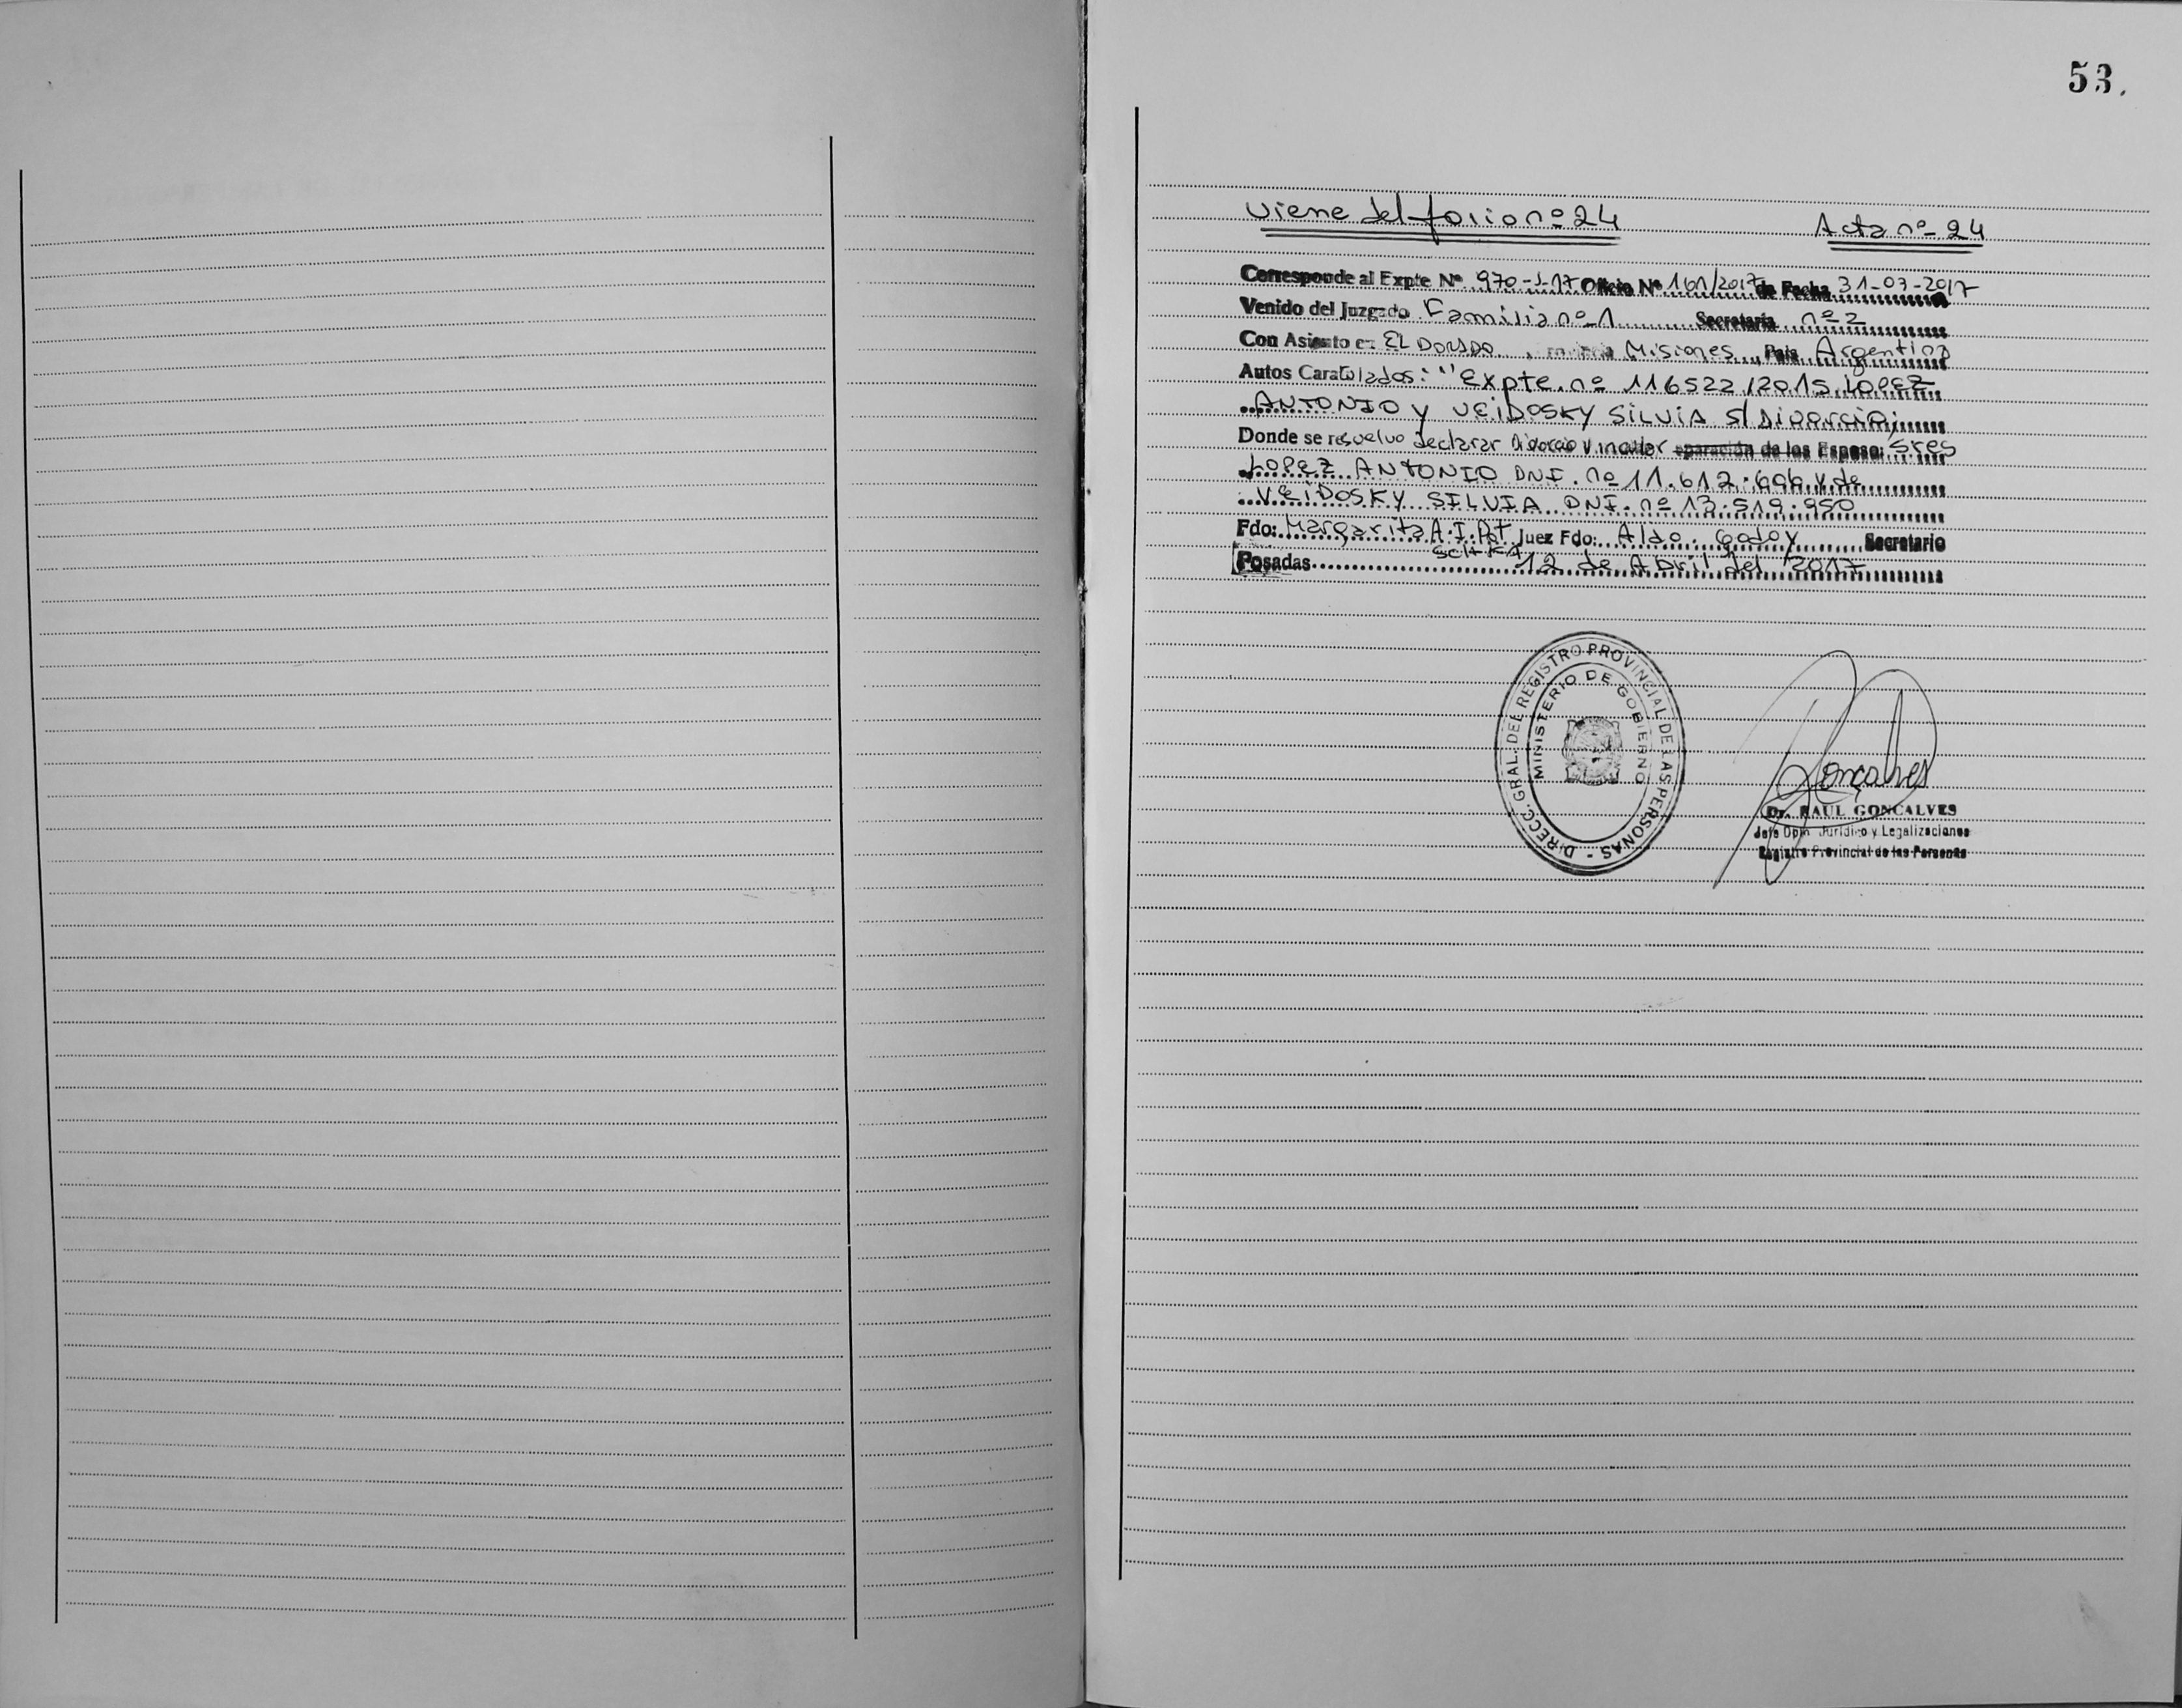 53.
Viene del folio nº 24
Acta nº 24
Corresponde al Expte Nº 970-J-17 Oficio Nº 161/2017 de Fecha 31-03-2017
Venido del Juzgado Familia nº 1 Secretaria nº 2
Con Asiento en EL DORADO, Misiones, Pais Argentina
Autos Caratulados: "Expte. nº 116522/2015 LOPEZ
ANTONIO y VEIDOSKY SILVIA S/ Divorcio;
Donde se resuelvo declarar Divorcio Vincular eparación de los Esposo: Sres
LOPEZ ANTONIO DNI. nº 11.612.696 y de
VEIDOSKY SILVIA DNI. nº 13.519.950
Fdo: Margarita A.I. Juez Fdo: Aldo. Godoy Secretario
Posadas 12 de Abril del 2017
DIRECC. GRAL. DEL REGISTRO PROVINCIAL DE LAS PERSONAS -
MINISTERIO DE GOBIERNO
Gonçalves
Dr. RAUL GONCALVES
Jefe Dptn Jurídico y Legalizaciones
Registro Provincial de las Personas